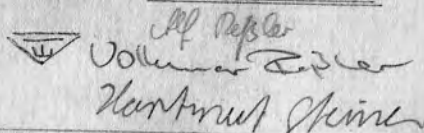 Alf Reßler
Volkmar Reßler
Hartmut Steiner